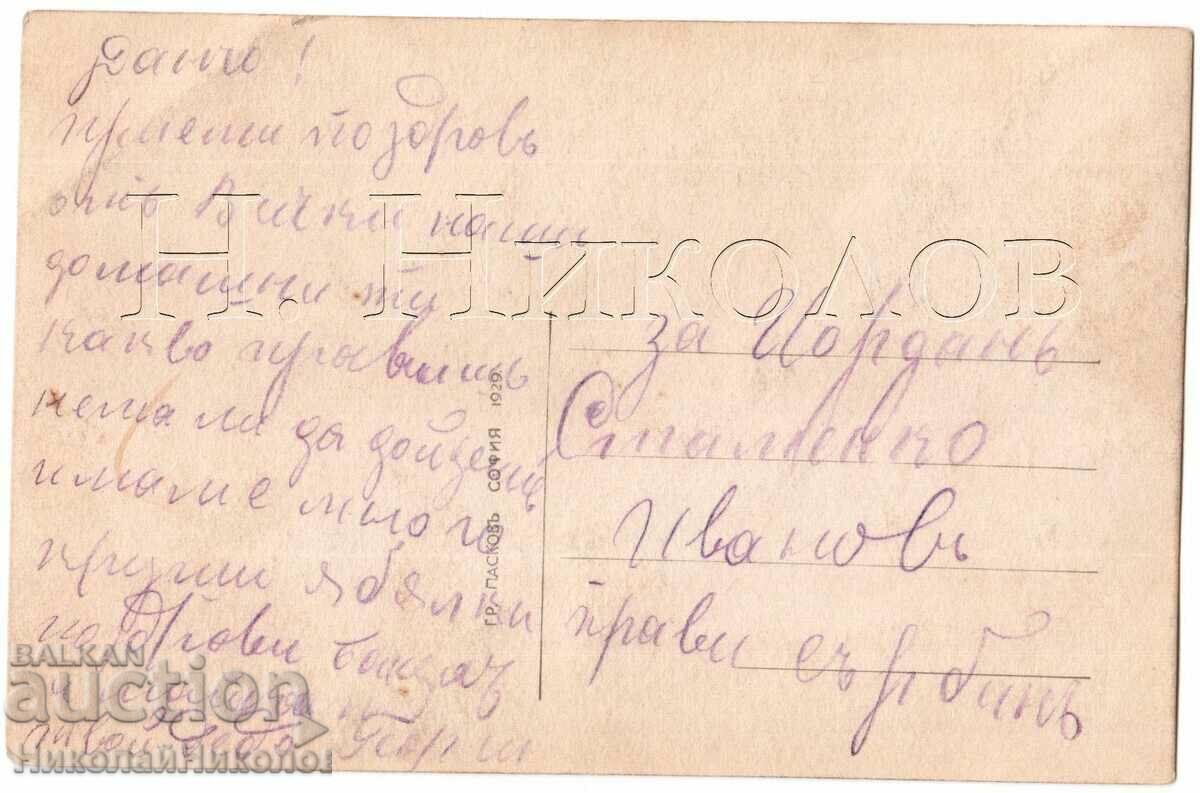 Данчо!
приеми поздровъ
отъ Всички наши
домашни ти
какво правишъ
нема ли да дойдешъ
имаме много
круши ябълки
поздрови
твой Георги
ГР. ПАСКОВЪ СОФИЯ 1929.
за Йорданъ
Стаменко
Ивановъ
Прави сърбинъ
Н. НИКОЛОВ
BALKAN
auction
НиколайНиколов